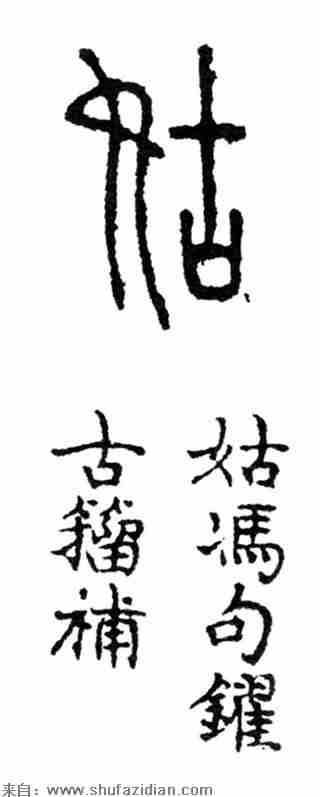 姑
姑馮句鑃
古籀補
来自：www.shufazidian.com